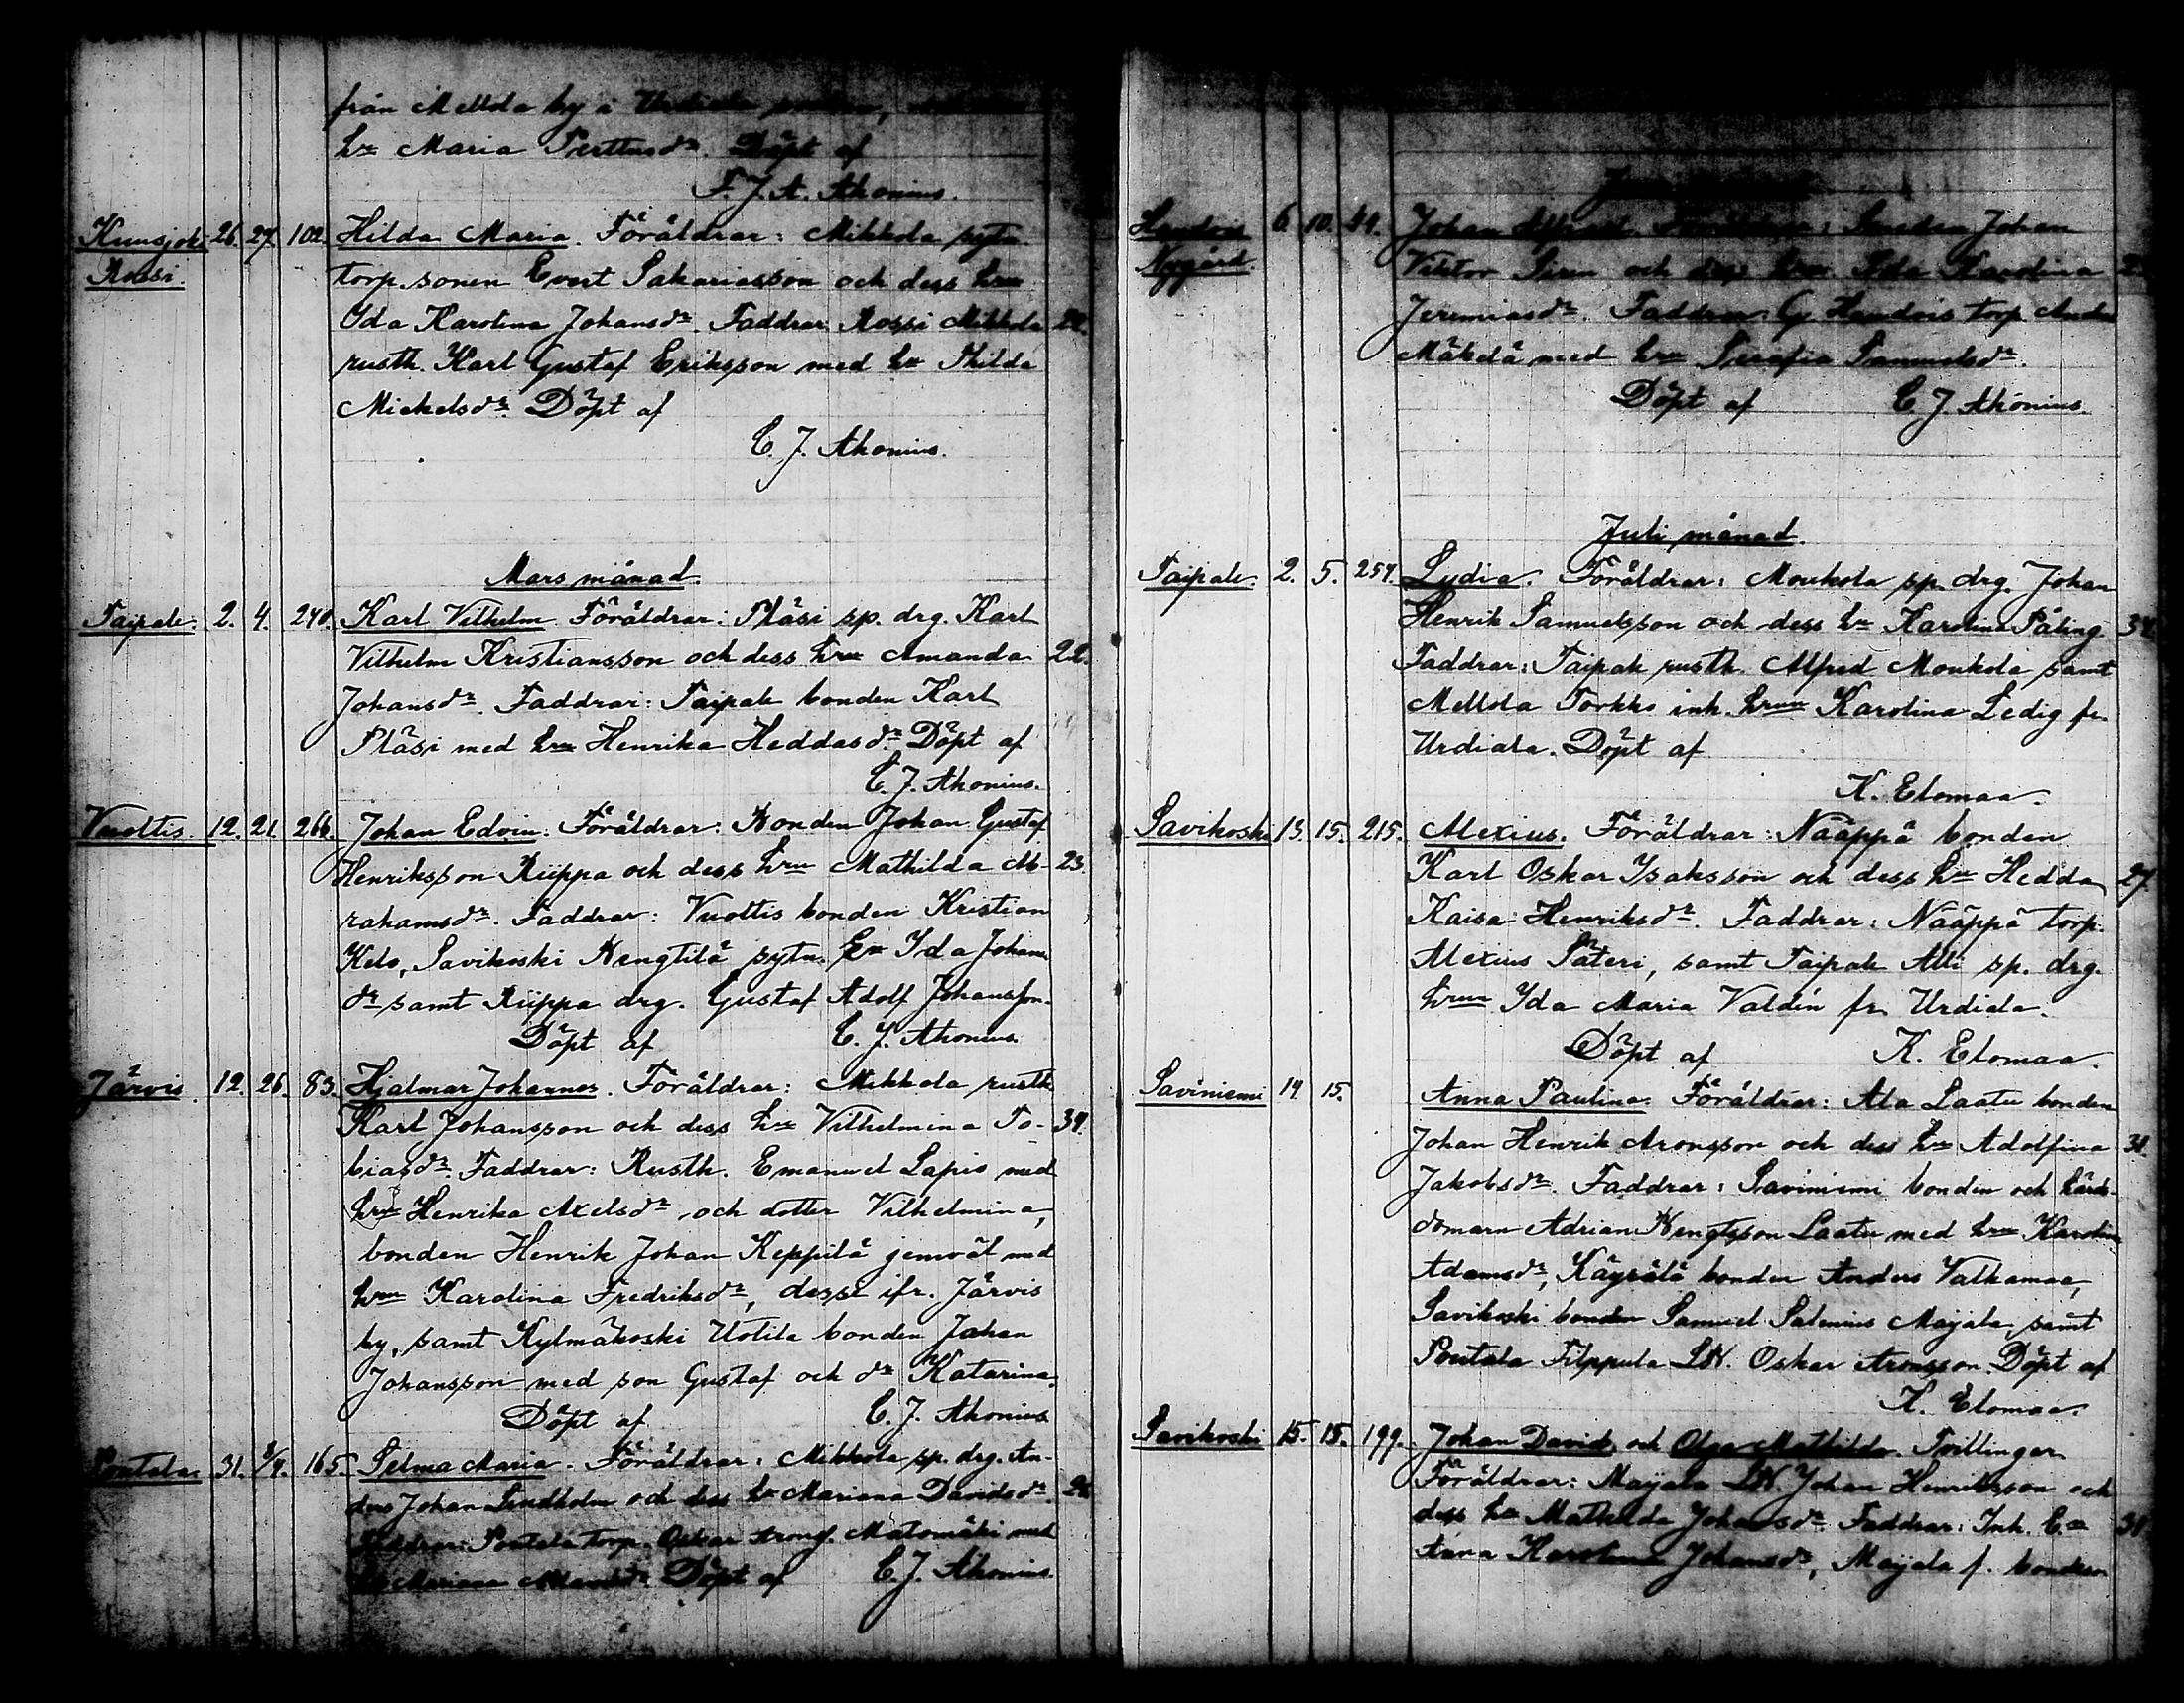 från Mellola by i Urdiala
hu Maria Perttusdr. Döpt af
F. J. A. Ahonius.
Kuusjoki 26. 27. 102. Hilda Maria. Föräldrar: Mikkola sytn.
Rossi. torp. sonen Evert Sakariasson och dess hru
Ida Karolina Johansdr. Faddrar Rossi Mikkola 22.
rusth. Karl Gustaf Eriksson med hu Thilda
Mickelsdr. Döpt af
C. J. Ahonius.
Mars månad.
Taipale. 2. 4. 240. Karl Vilhelm. Föräldrar: Pläsi sp. drg. Karl
Vilhelm Kristiansson och dess hru Amanda 22.
Johansdr. Faddrar: Taipale bonden Karl
Pläsi med hru Henrika Heddasdr. Döpt af
C. J. Ahonius.
Vuoltis. 12. 21. 266. Johan Edvin. Föräldrar: Bonden Johan Gustaf
Henriksson Riippa och dess hru Mathilda Ab- 23.
rahamsdr. Faddrar: Vuoltis bonden Kristian
Kelo, Savikoski Bengtilä sytn. Ida Johans
dr samt Riippa drg. Gustaf Adolf Johansson.
Döpt af C. J. Ahonius.
Järvis. 12. 26. 83. Hjalmar Johannes. Föräldrar: Mikkola rusth.
Karl Johansson och dess hru Vilhelmina To- 34.
biasdr. Faddrar: Rusth. Emanuel Lapis med
hru Henrika Axelsdr och dotter Vilhelmina,
bonden Henrik Johan Keppilä jemväl med
hru Karolina Fredriksdr, desse ifr. Järvis
by, samt Kylmäkoski Uotila bonden Johan
Johansson med son Gustaf och dr Katarina.
Döpt af C. J. Ahonius
Pontala. 31. 3/4. 165. Selma Maria. Föräldrar: Mikkola sp. drg. An-
ders Johan Lindholm och dess hu Mariana Davidsdr.
Faddrar: Pontala torp. Oskar Aronss. Matomäki med
Mariana Döpt af C. J. Ahonius.
Nygård 6. 10. 44. Johan Föräldrar: Smeden Johan
Viktor Siren och dess hru Ida Karolina
Jeremiasdr. Faddrar: torp. Anders
Mäkelä med hru Serafia Samuelsdr.
Döpt af C. J. Ahonius.
Juli månad.
Taipale. 2. 5. 254. Lydia. Föräldrar: Moukola sp. drg. Johan
Henrik Samuelsson och dess hu Karolina Påling 34.
Faddrar: Taipale rusth. Alfred Moukola samt
Mellola Torkko inh. hrun Karolina Ledig fr.
Urdiala. Döpt af
K. Elomaa.
Savikoski 13. 15. 215. Alexius. Föräldrar: Nääppä bonden
Karl Oskar Isaksson och dess hu Hedda 27.
Kaisa Henriksdr. Faddrar: Nääppä torp.
Alexius Säteri, samt Taipale Alli sp. drg.
hrun Ida Maria Valdén fr. Urdiala.
Döpt af K. Elomaa.
Saviniemi 14. 15. Anna Paulina. Föräldrar: Ala Laatu bonden
Johan Henrik Aronsson och dess hu Adolfina 31.
Jakobsdr. Faddrar: Saviniemi bonden och härads-
domarn Adrian Bengtsson Laatu med hru Karolina
Adamsdr, Käyrälä bonden Anders Valkamaa,
Savikoski bonden Samuel Salenius Maijala, samt
Pontala Filppula LB. Oskar Aronsson. Döpt af
K. Elomaa.
Savikoski 15. 15. 199. Johan David och Olga Mathilda. Tvillingar.
Föräldrar: Maijala LB. Johan Henriksson och
dess hu Mathilda Johansdr. Faddrar: Inh.
Anna Karolina Johansdr, Maijala f. bonden